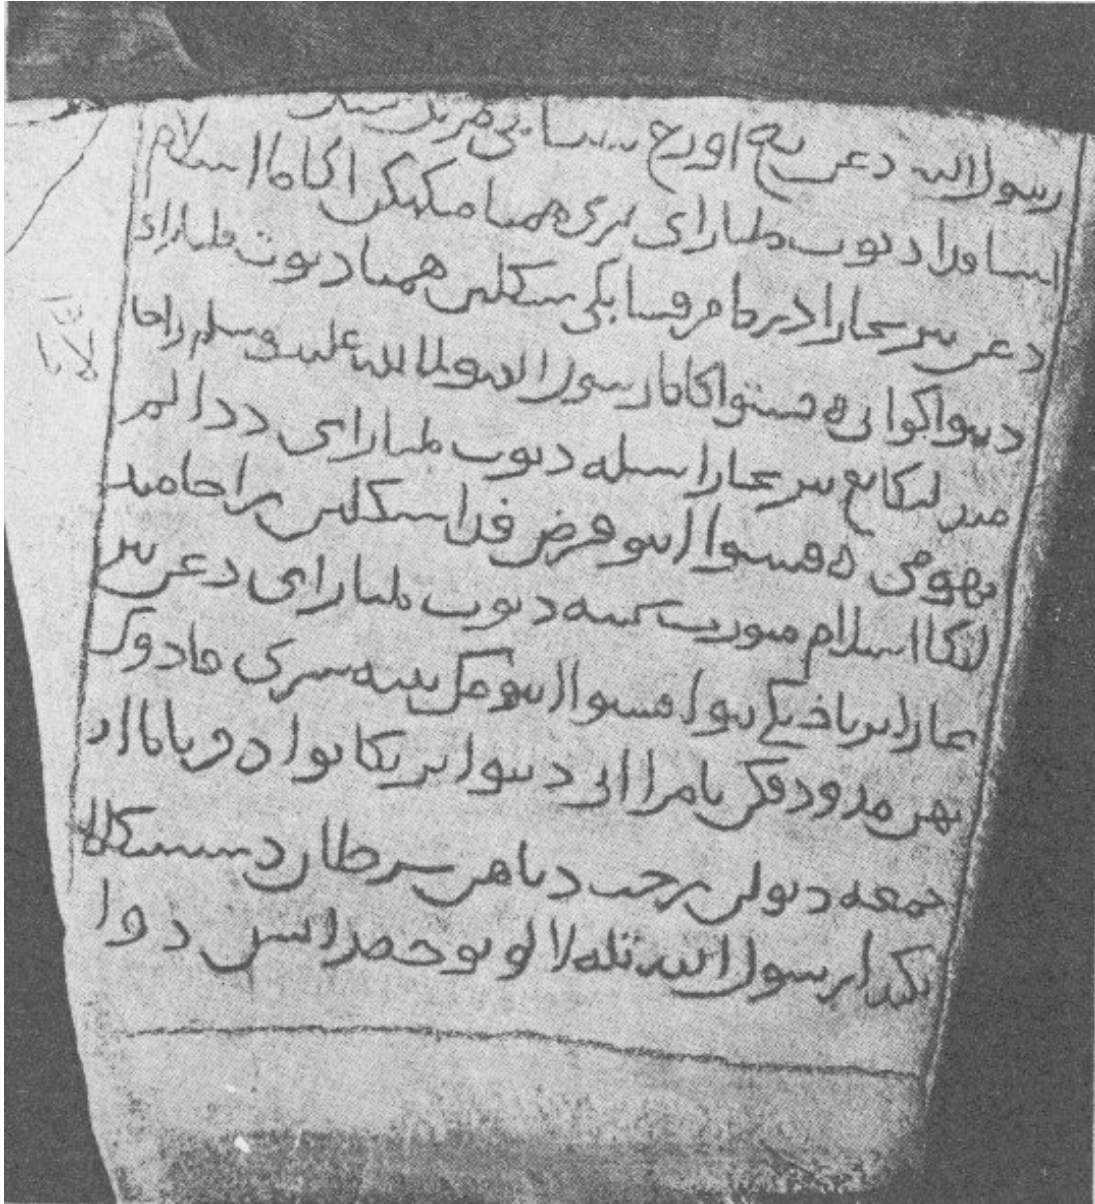 رسول الله دعن يغ اورغ سنتابي مريك
اسا فدا ديوت مليا راي بري همبا منكهكن اكاما اسلام
دعن بنر بجارا درما مرقسا بكي سكلين همبا ديوت مليا راي
دبنواكو اين فنتوا اكاما رسول الله صلى الله عليه وسلم راجا
مندلكا يغ بنر بجارا سبله ديوت مليا راي ددالم
بهومي فنتوا ايتو فرض فدا سكلين راجا مند
لكا اسلام منورت ستيته ديوت مليا راي دعن بنر
بجارا برباجيكي بنوا فنتوا ايتو مك تيته سري فادوك
تهن مدودقكن تامرا اين دبنوا ترعكانو ادفرتاما اد
جمعة دبولن رجب دتاهن سرطان دسسنكالا
بكندا رسول الله تله لالو توجه راتس دوا